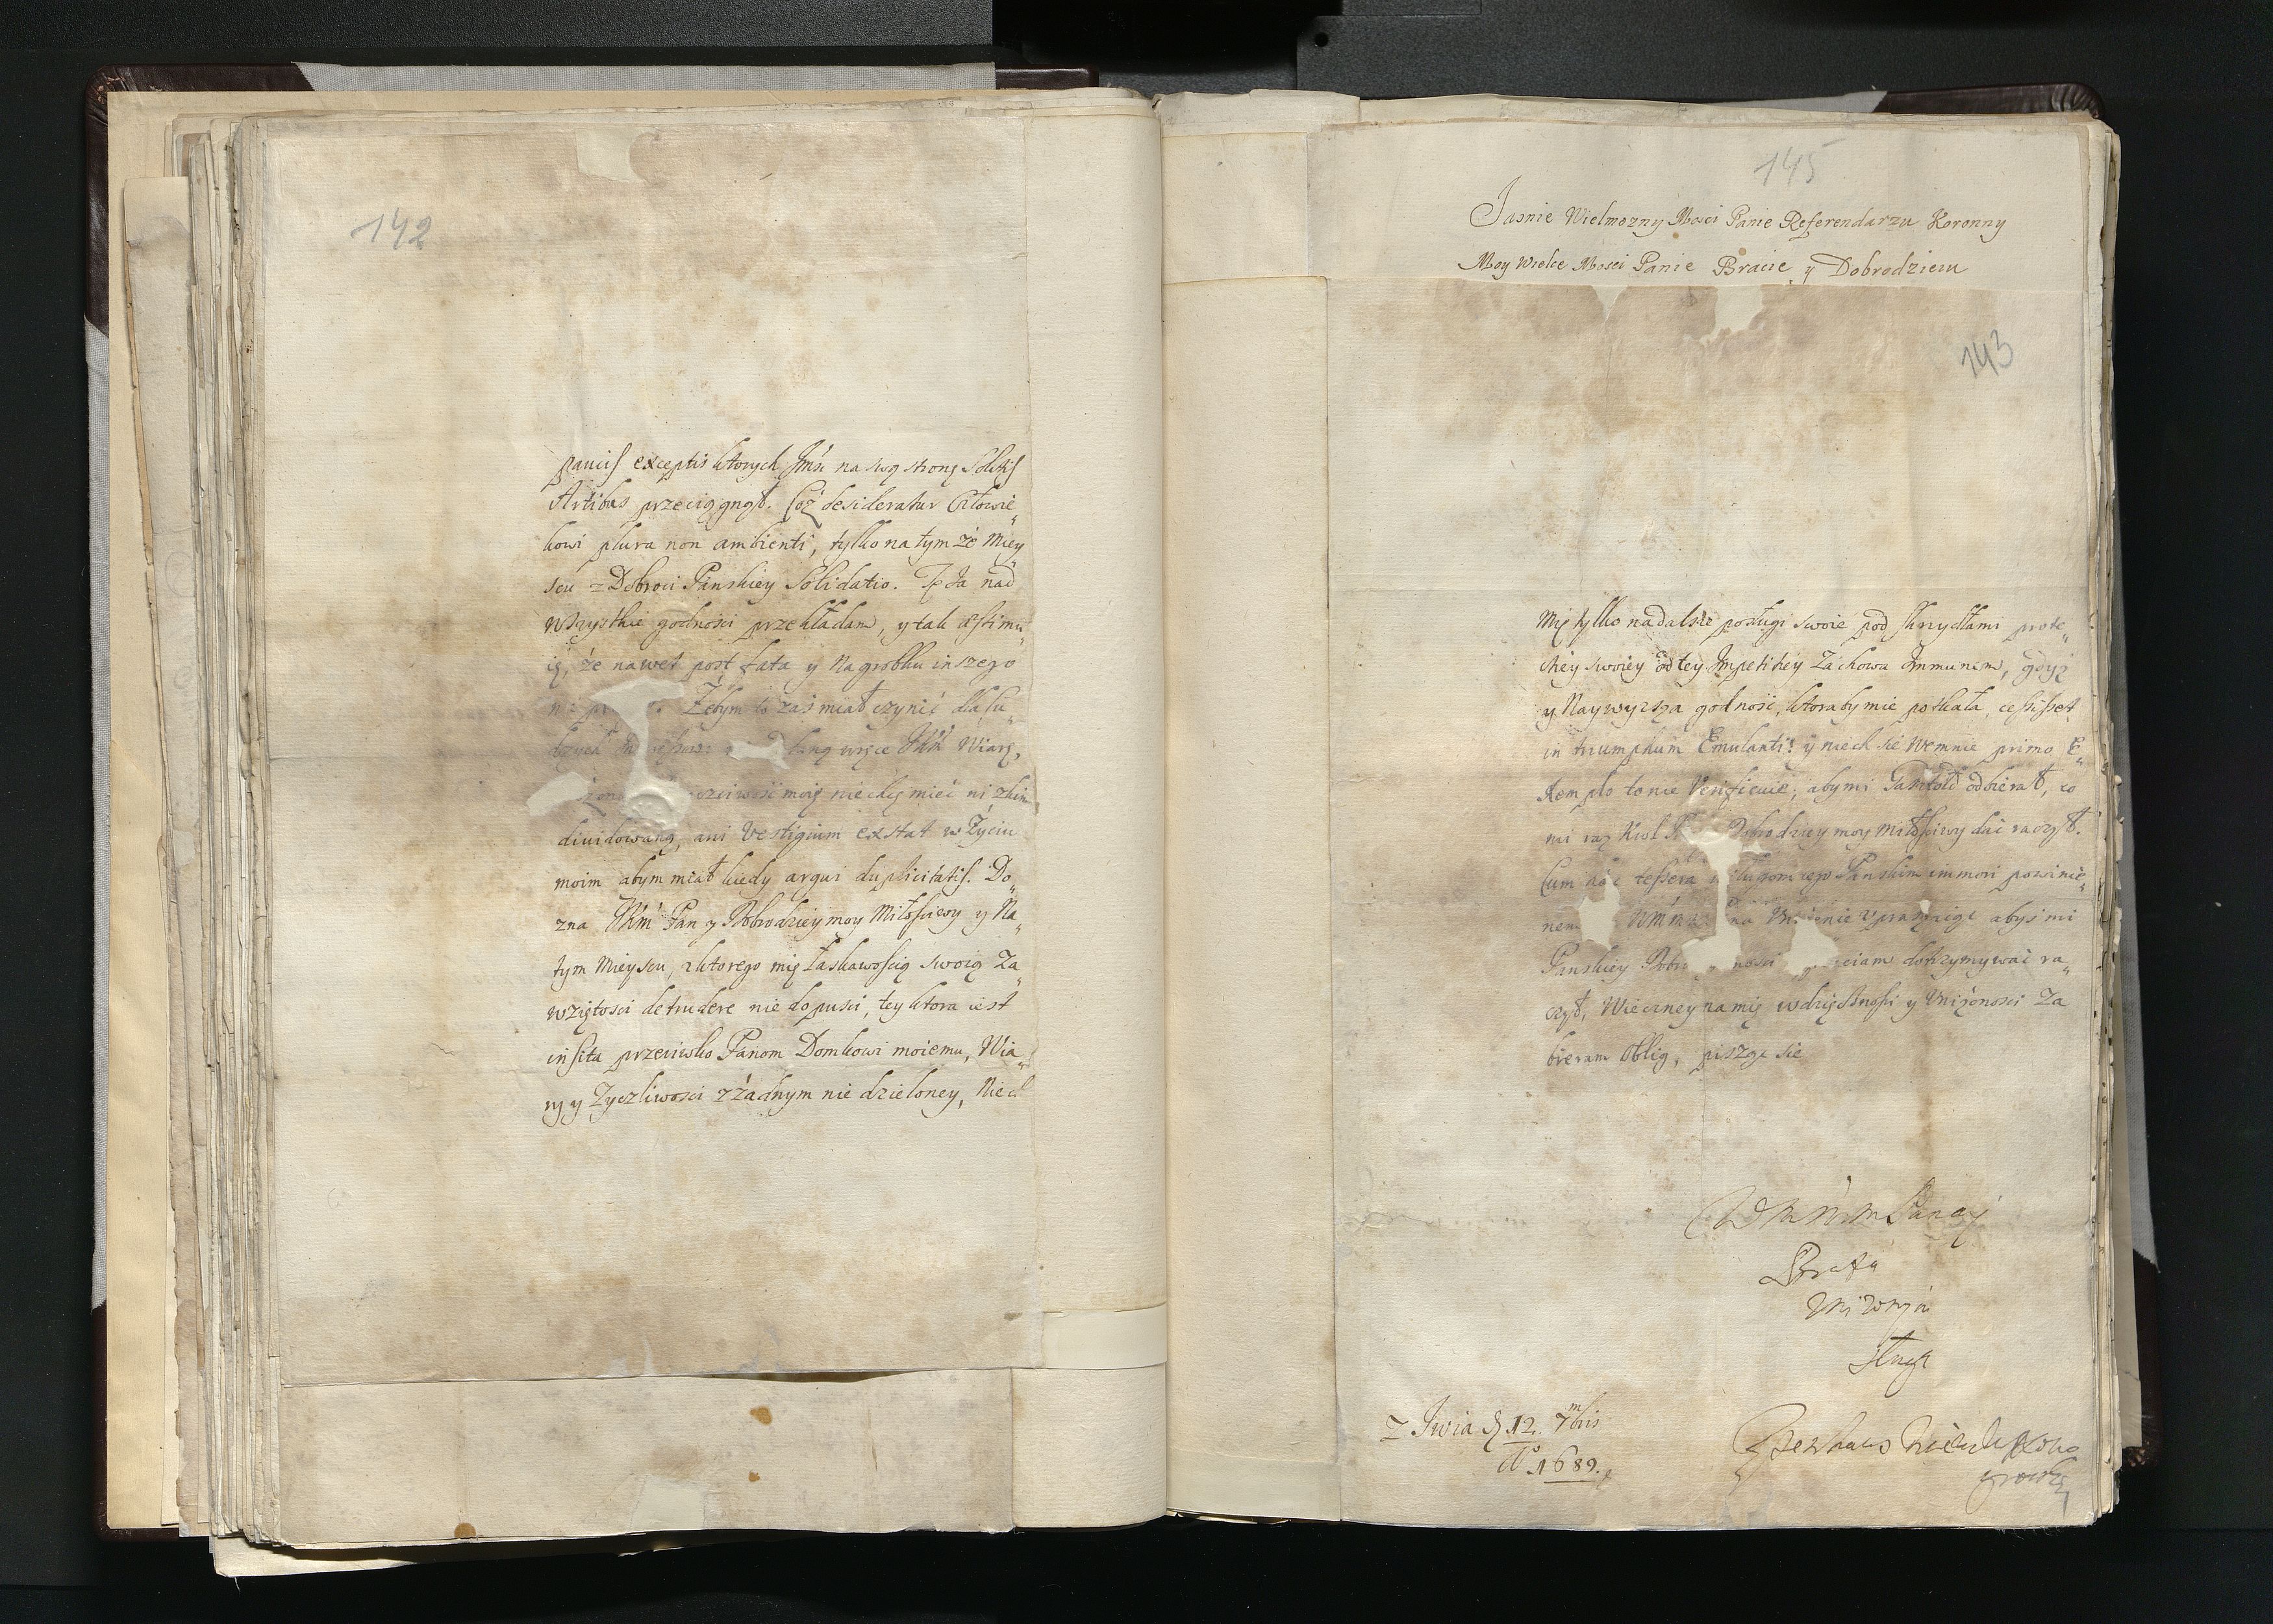 142
paucis exceptis ktorych Jmśc na swą stronę Solitis
Artibus przeciągnął. Coż desideratur Człowie„
kowi plura non ambienti, tylko na tym że Miey„
scu z Dobroci Panskiey Solidatio. Tę Ja nad
wszystkie godności przekładam, y tak æstimu„
ię, że nawet post fata y Nagrobku inszego
Żebym to zaś miał czynić dla lu„
wręce Wiarę,
moię niechcę mieć ni zkim
diuidowaną, ani Vestigium exstat w Życiu
moim abym miał kiedy argui duplicitatis. Do„
zna WMm Pan y Dobrodziey moy Miłościwy y Na„
tym Mieyscu, zktorego mię łaskawością swoią Za„
wziętosci detrudere nie dopusci, tey ktora iest
insita przeciwko Panom Domkowi moiemu, Wia„
ry y Zyczliwosci zżadnym nie dzieloney, Niech
145
Jasnie Wielmozny Mosci Panie Referendarzu Koronny
Moy Wielce Mosci Panie Bracie y Dobrodzieiu
143
Mię tylko nadalsze posługi swoie pod skrzydłami prote„
ktiey swoiey od tey Impetitiey Zachowa Immunem, gdyż
y Naywyzsza godność, ktoraby mie potkała, cessisset
in triumphum Emulanti! y niech sie wemnie primo E„
xemplo to nie Verificuie, aby mi Gasztold odbierał, co
mi raz Krol Dobrodziey moy Miłościwy dać raczył.
Cum hac tessera Panskim immori powinie„
nem na abyś mi
Panskiey dotrzymywać ra„
czył, Wieczney na mię wdzięcznośći y Vniżonosci Za„
bieram Oblig, pisząc sie
WMMm Panay
Brata
Vniżony
sługa
Z Iwia d 12. 7mbris
Ao 1689.